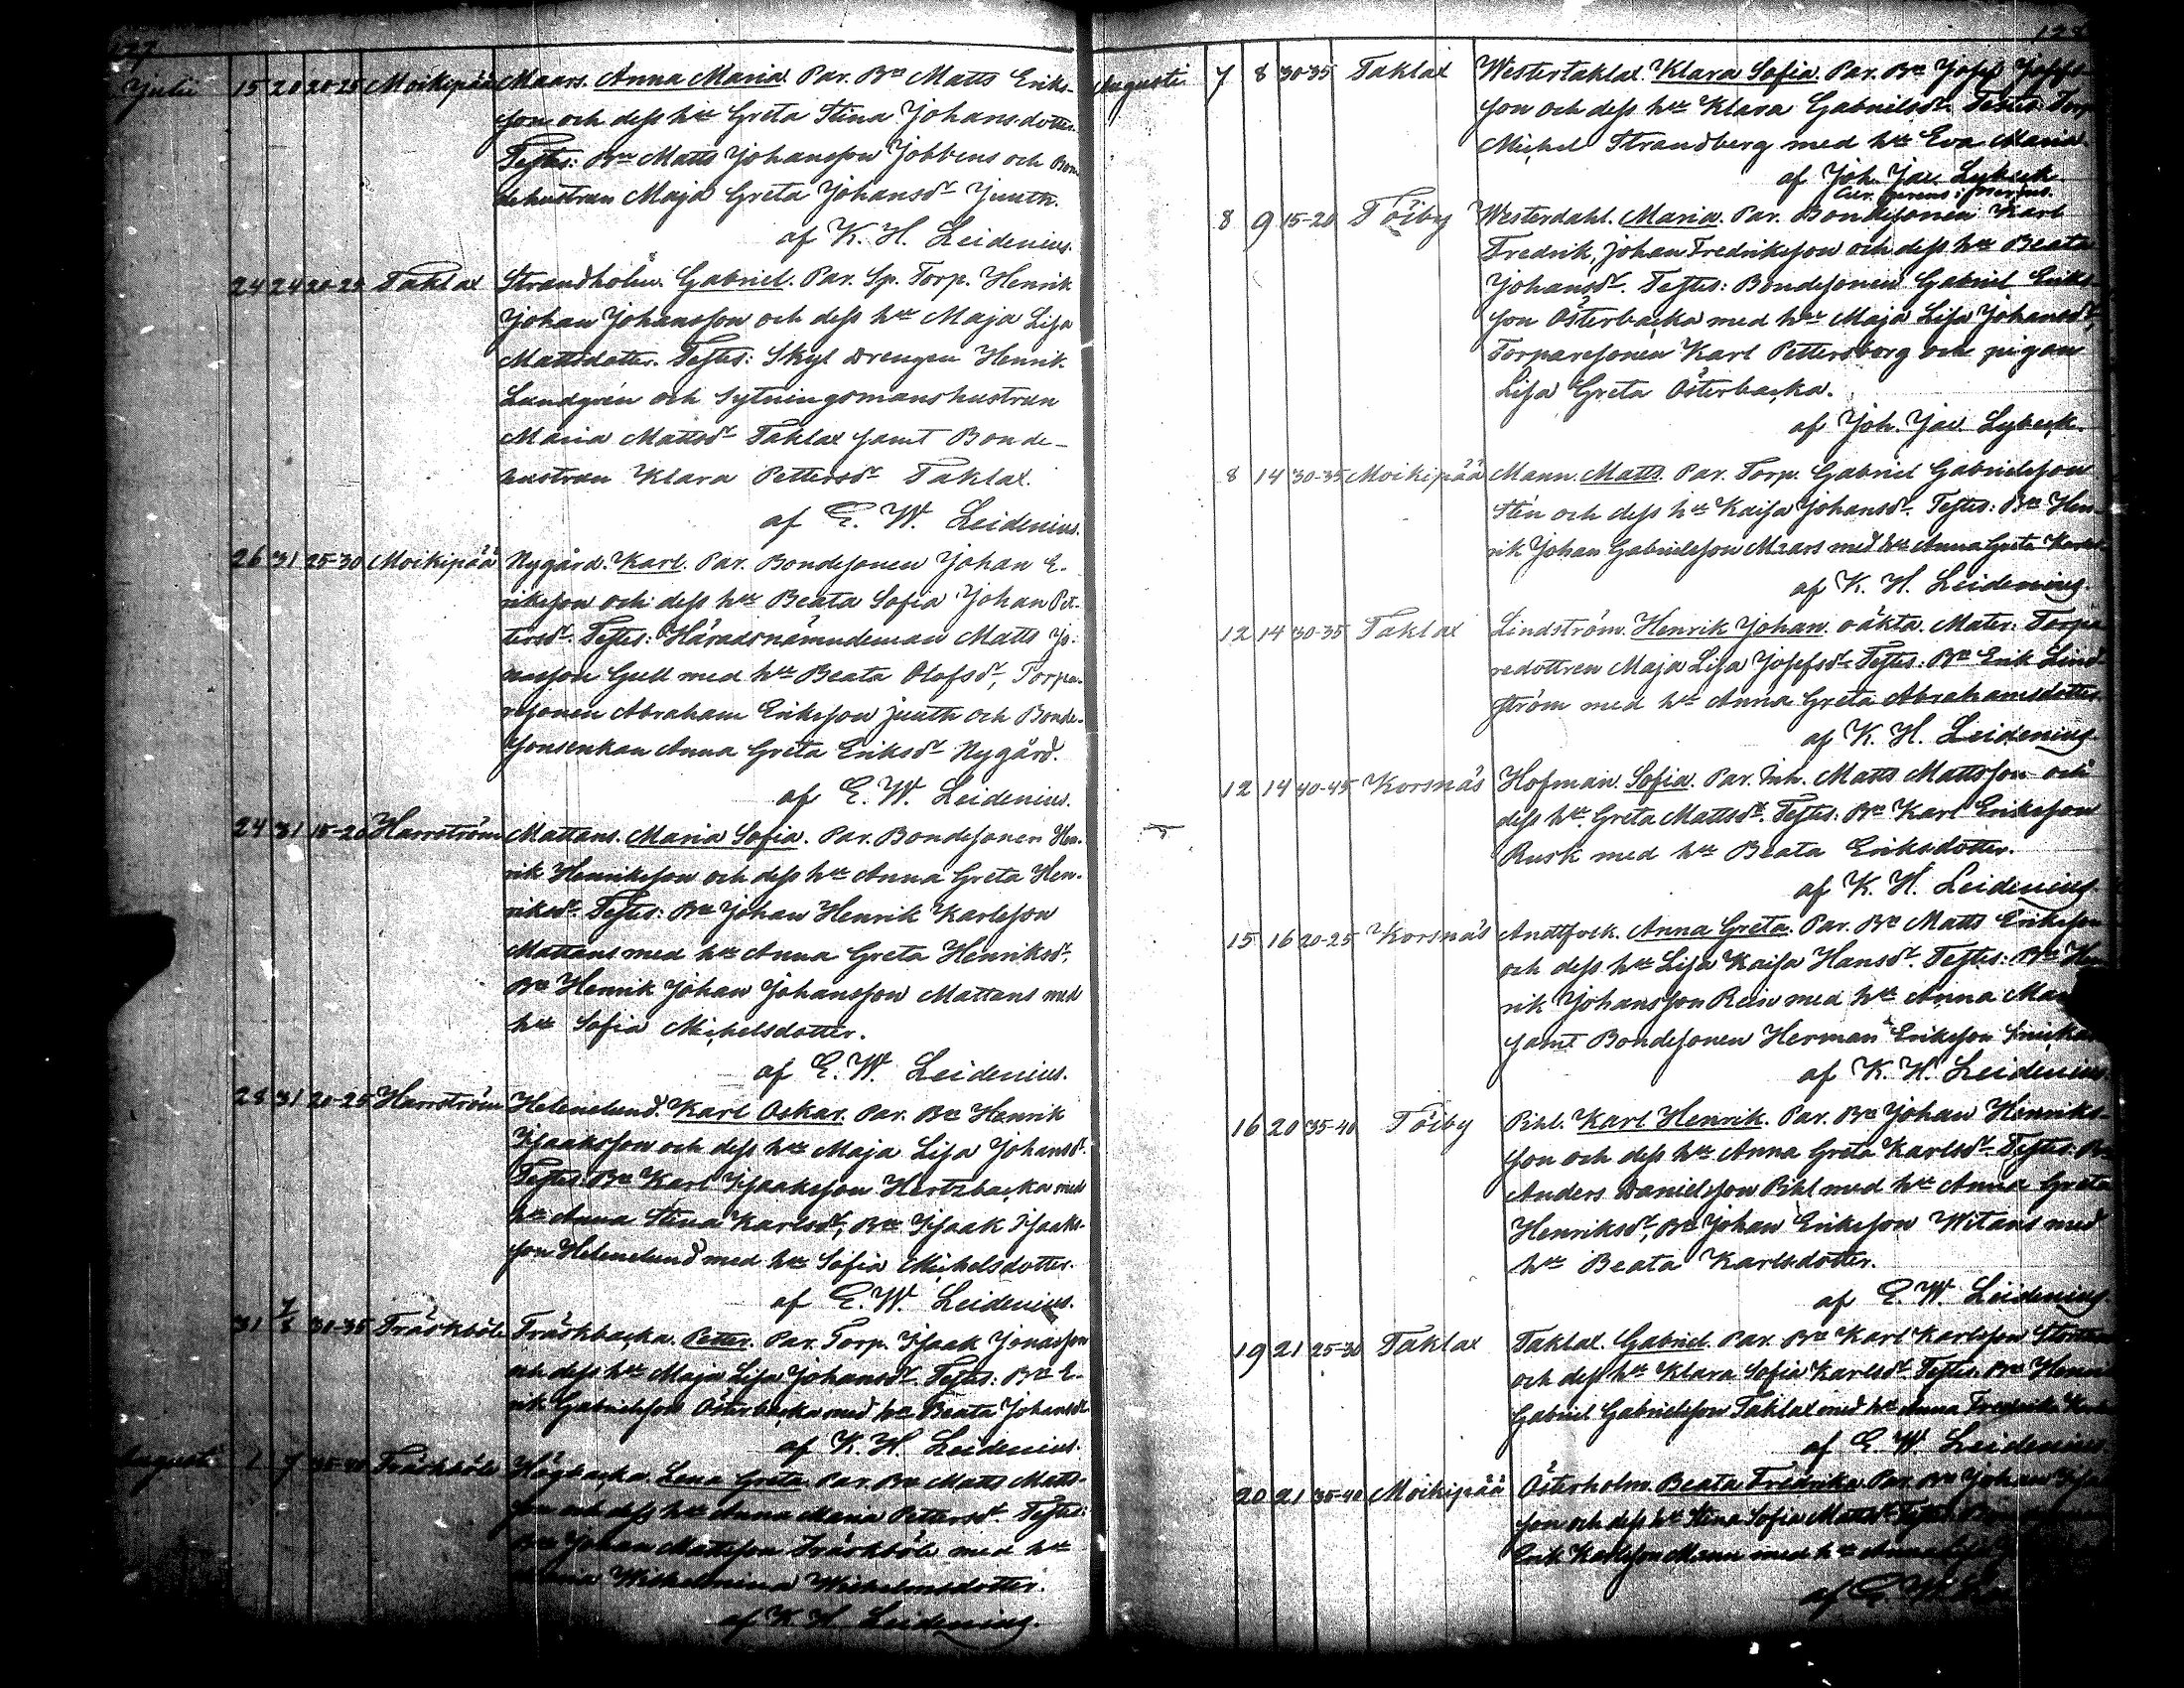 127
Julii 15 20 20-25 Moikipää Maars. Anna Maria. Par. Bn Matts Eriks-
son och dess hu Greta Stina Johansdotter.
Testes: Bn Matts Johansson Jobbens och Bon-
dehustrun Maja Greta Johansdr Juuth.
af K. H. Leidenius.
24 24 20-25 Taklax Strandholm. Gabriel. Par. Sp. Torp. Henrik
Johan Johansson och dess hu Maja Lisa
Mattsdotter. Testes: Skyl drengen Henrik
Lundgrén och Sytningsmanshustrun
Maria Mattsdr Taklax samt Bonde-
hustrun Klara Pettersdr Taklax.
af E. W. Leidenius.
26 31 25-30 Moikipää Nygård. Karl. Par. Bondesonen Johan E-
riksson och dess hu Beata Sofia Johan Pet-
tersdr. Testes: Häradsnämndeman Matts Jo-
nasson Gull med hu Beata Olofsdr, Torpa-
resonen Abraham Eriksson Juuth och Bonde-
sonsenkan Anna Greta Eriksdr Nygård.
af E. W. Leidenius.
24 31 15-20 Harrström Mattans. Maria Sofia. Par. Bondesonen Hen-
rik Henriksson och dess hu Anna Greta Hen-
riksdr. Testes: Bn Johan Henrik Karlsson
Mattans med hu Anna Greta Henriksdr,
Bn Henrik Johan Johansson Mattans med
hu Sofia Michelsdotter.
af E. W. Leidenius.
28 31 20-25 Harrström Helenelund. Karl Oskar. Par. Bn Henrik
Isaaksson och dess hu Maja Lisa Johansdr.
Testes: Bn Karl Isaaksson Hertzbacka med
hu Anna Stina Karlsdr, Bn Isaak Isaaks-
son Helenelund med hu Sofia Michelsdotter.
af E. W. Leidenius.
31 1/8 30-35 Träskböle Träskbacka. Petter. Par. Torp. Isaak Jonasson
och dess hu Maja Lisa Johansdr. Testes: Bn E-
rik Gabrielsson Österbacka med hu Beata Johansdr
af K. H. Leidenius.
Augusti 2 7 35-40 Träskböle Högbacka. Lena Greta. Par. Bn Matts Matts-
son och dess hu Anna Maria Pettersdr. Testes:
Bn Johan Mattsson Träskböle med hu
Wilhelmina Wilhelmsdotter.
af K. H. Leidenius.
Augusti 7 8 30-35 Taklax Westertaklax. Klara Sofia. Par. Bn Josef Josefs-
son och dess hu Klara Gabrielsdr. Testes: Torp
Michel Strandberg med hu Eva Maria.
af Joh. Jac. Lybeck
8 9 15-20 Töjby Westerdahl. Maria. Par. Bondesonen Karl
Fredrik Johan Fredriksson och dess hu Beata
Johansdr. Testes: Bondesonen Gabriel Eriks-
son Österbacka med hu Maja Lisa Johansdr,
Torparesonen Karl Pettersborg och pigan
Lisa Greta Österbacka.
af Joh. Jac. Lybeck.
8 14 30-35 Moikipää Mann. Matts. Par. Torp. Gabriel Gabrielsson
Stén och dess hu Kaisa Johansdr. Testes: Bn Hen-
rik Johan Gabrielsson Maars med hu Anna Greta Karlsdr
af K. H. Leidenius.
12 14 30-35 Taklax Lindström. Henrik Johan. oäkta. Mater: Torpa-
redottren Maja Lisa Josefsdr. Testes: Bn Erik Lind-
ström med hu Anna Greta Abrahamsdotter
af K. H. Leidenius
12 14 40-45 Korsnäs Hofman. Sofia. Par. Inh. Matts Mattsson och
dess hu Greta Mattsdr. Testes: Bn Karl Eriksson
Rusk med hu Beata Eriksdotter.
af K. H. Leidenius
15 16 20-25 Korsnäs Anettfolk. Anna Greta. Par. Bn Matts Eriksson
och dess hu Lisa Kaisa Hansdr. Testes: Bn Hen
rik Johansson Rein med hu Anna Ma
samt Bondesonen Herman Eriksson
af K. H. Leidenius.
16 20 35-40 Töjby Pihl. Karl Henrik. Par. Bn Johan Henriks-
son och dess hu Anna Greta Karlsdr. Testes: Bn
Anders Danielsson Pihl med hu Anna Greta
Henriksdr, Bn Johan Eriksson Witans med
hu Beata Karlsdotter.
af E. W. Leidenius
19 21 25-30 Taklax Taklax. Gabriel. Par. Bn Karl Karlsson
och dess hu Klara Sofia Karlsdr. Testes: Bn Henrik
Gabriel Gabrielsson Taklax med hu Anna Fredrika
af E. W. Leidenius
20 21 35-40 Moikipää Österholm. Beata Fredrika. Par. Bn Johan
son och dess hu Stina Sofia Mattsdr. Testes:
Erik Karlsson Mann med hu Anna
af E. W.